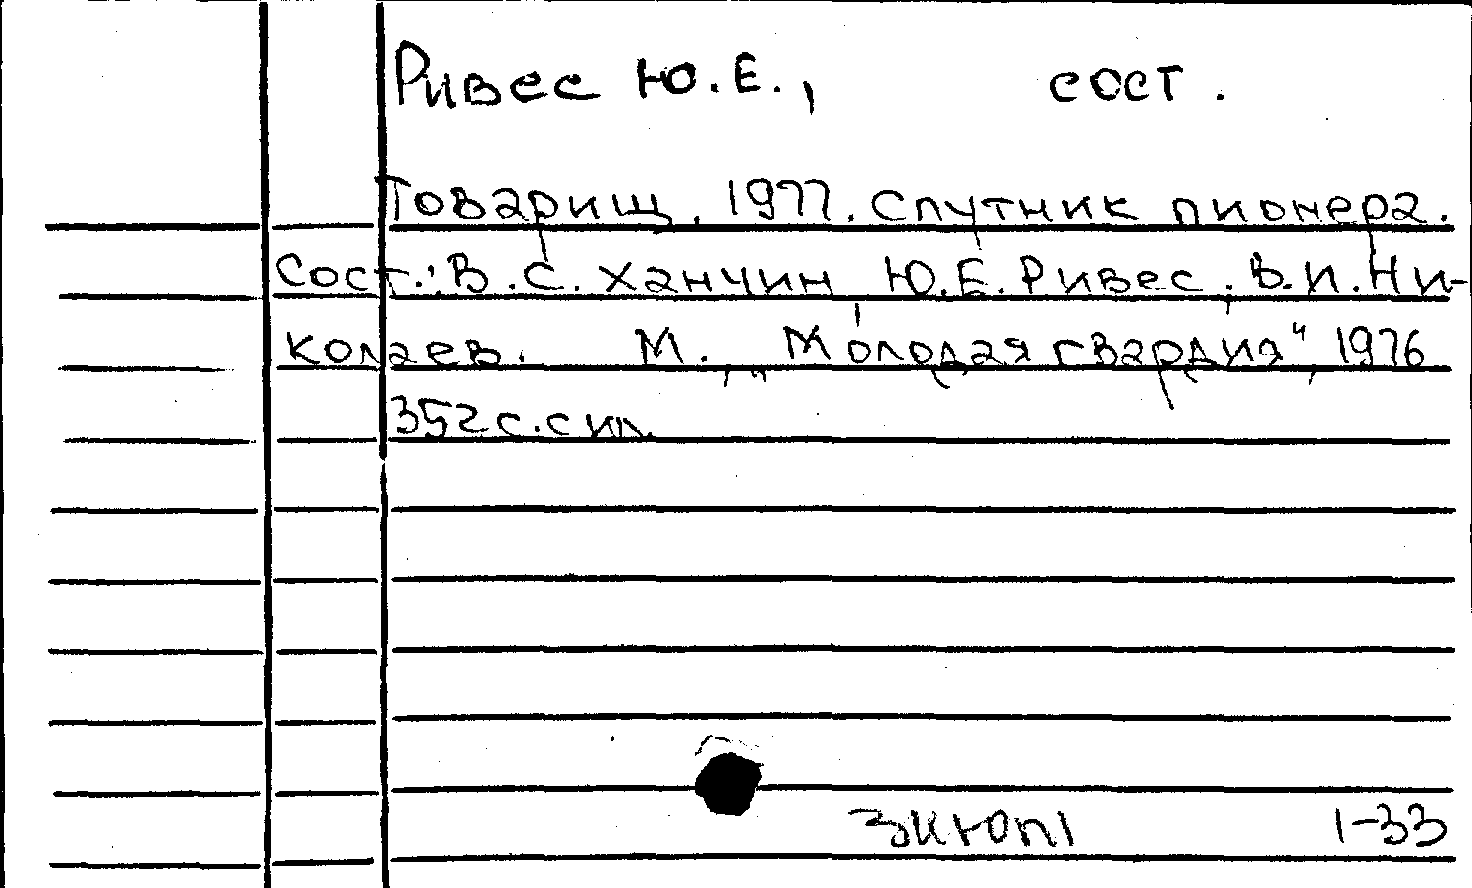 Ривес Ю.Е., сост.
Товарищ. 1977. Спутник пионера.
Сост.: В.С. Ханчин, Ю.Е. Ривес, В.И. Ни-
колаев. М., "Молодая гвардия", 1976
352 с. с ил.
3КЮП1 1-33